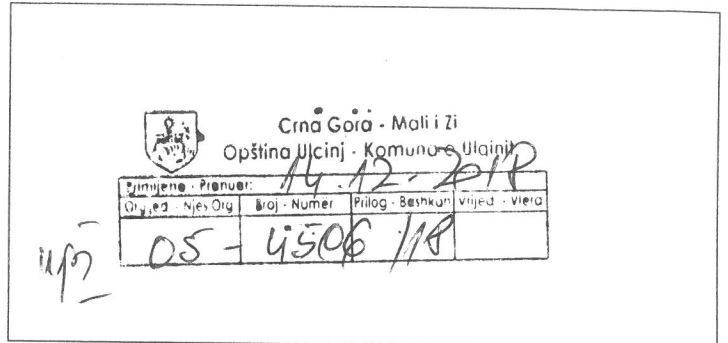 Crna Gora - Mali i Zi
Opština Ulcinj - Komuna e Ulqinit
Primljeno - Pranuar: 14.12-2018
Org.jed - Njes Org Broj - Numër Prilog - Bashkan Vrijed - Vlera
05 - 4506 /18